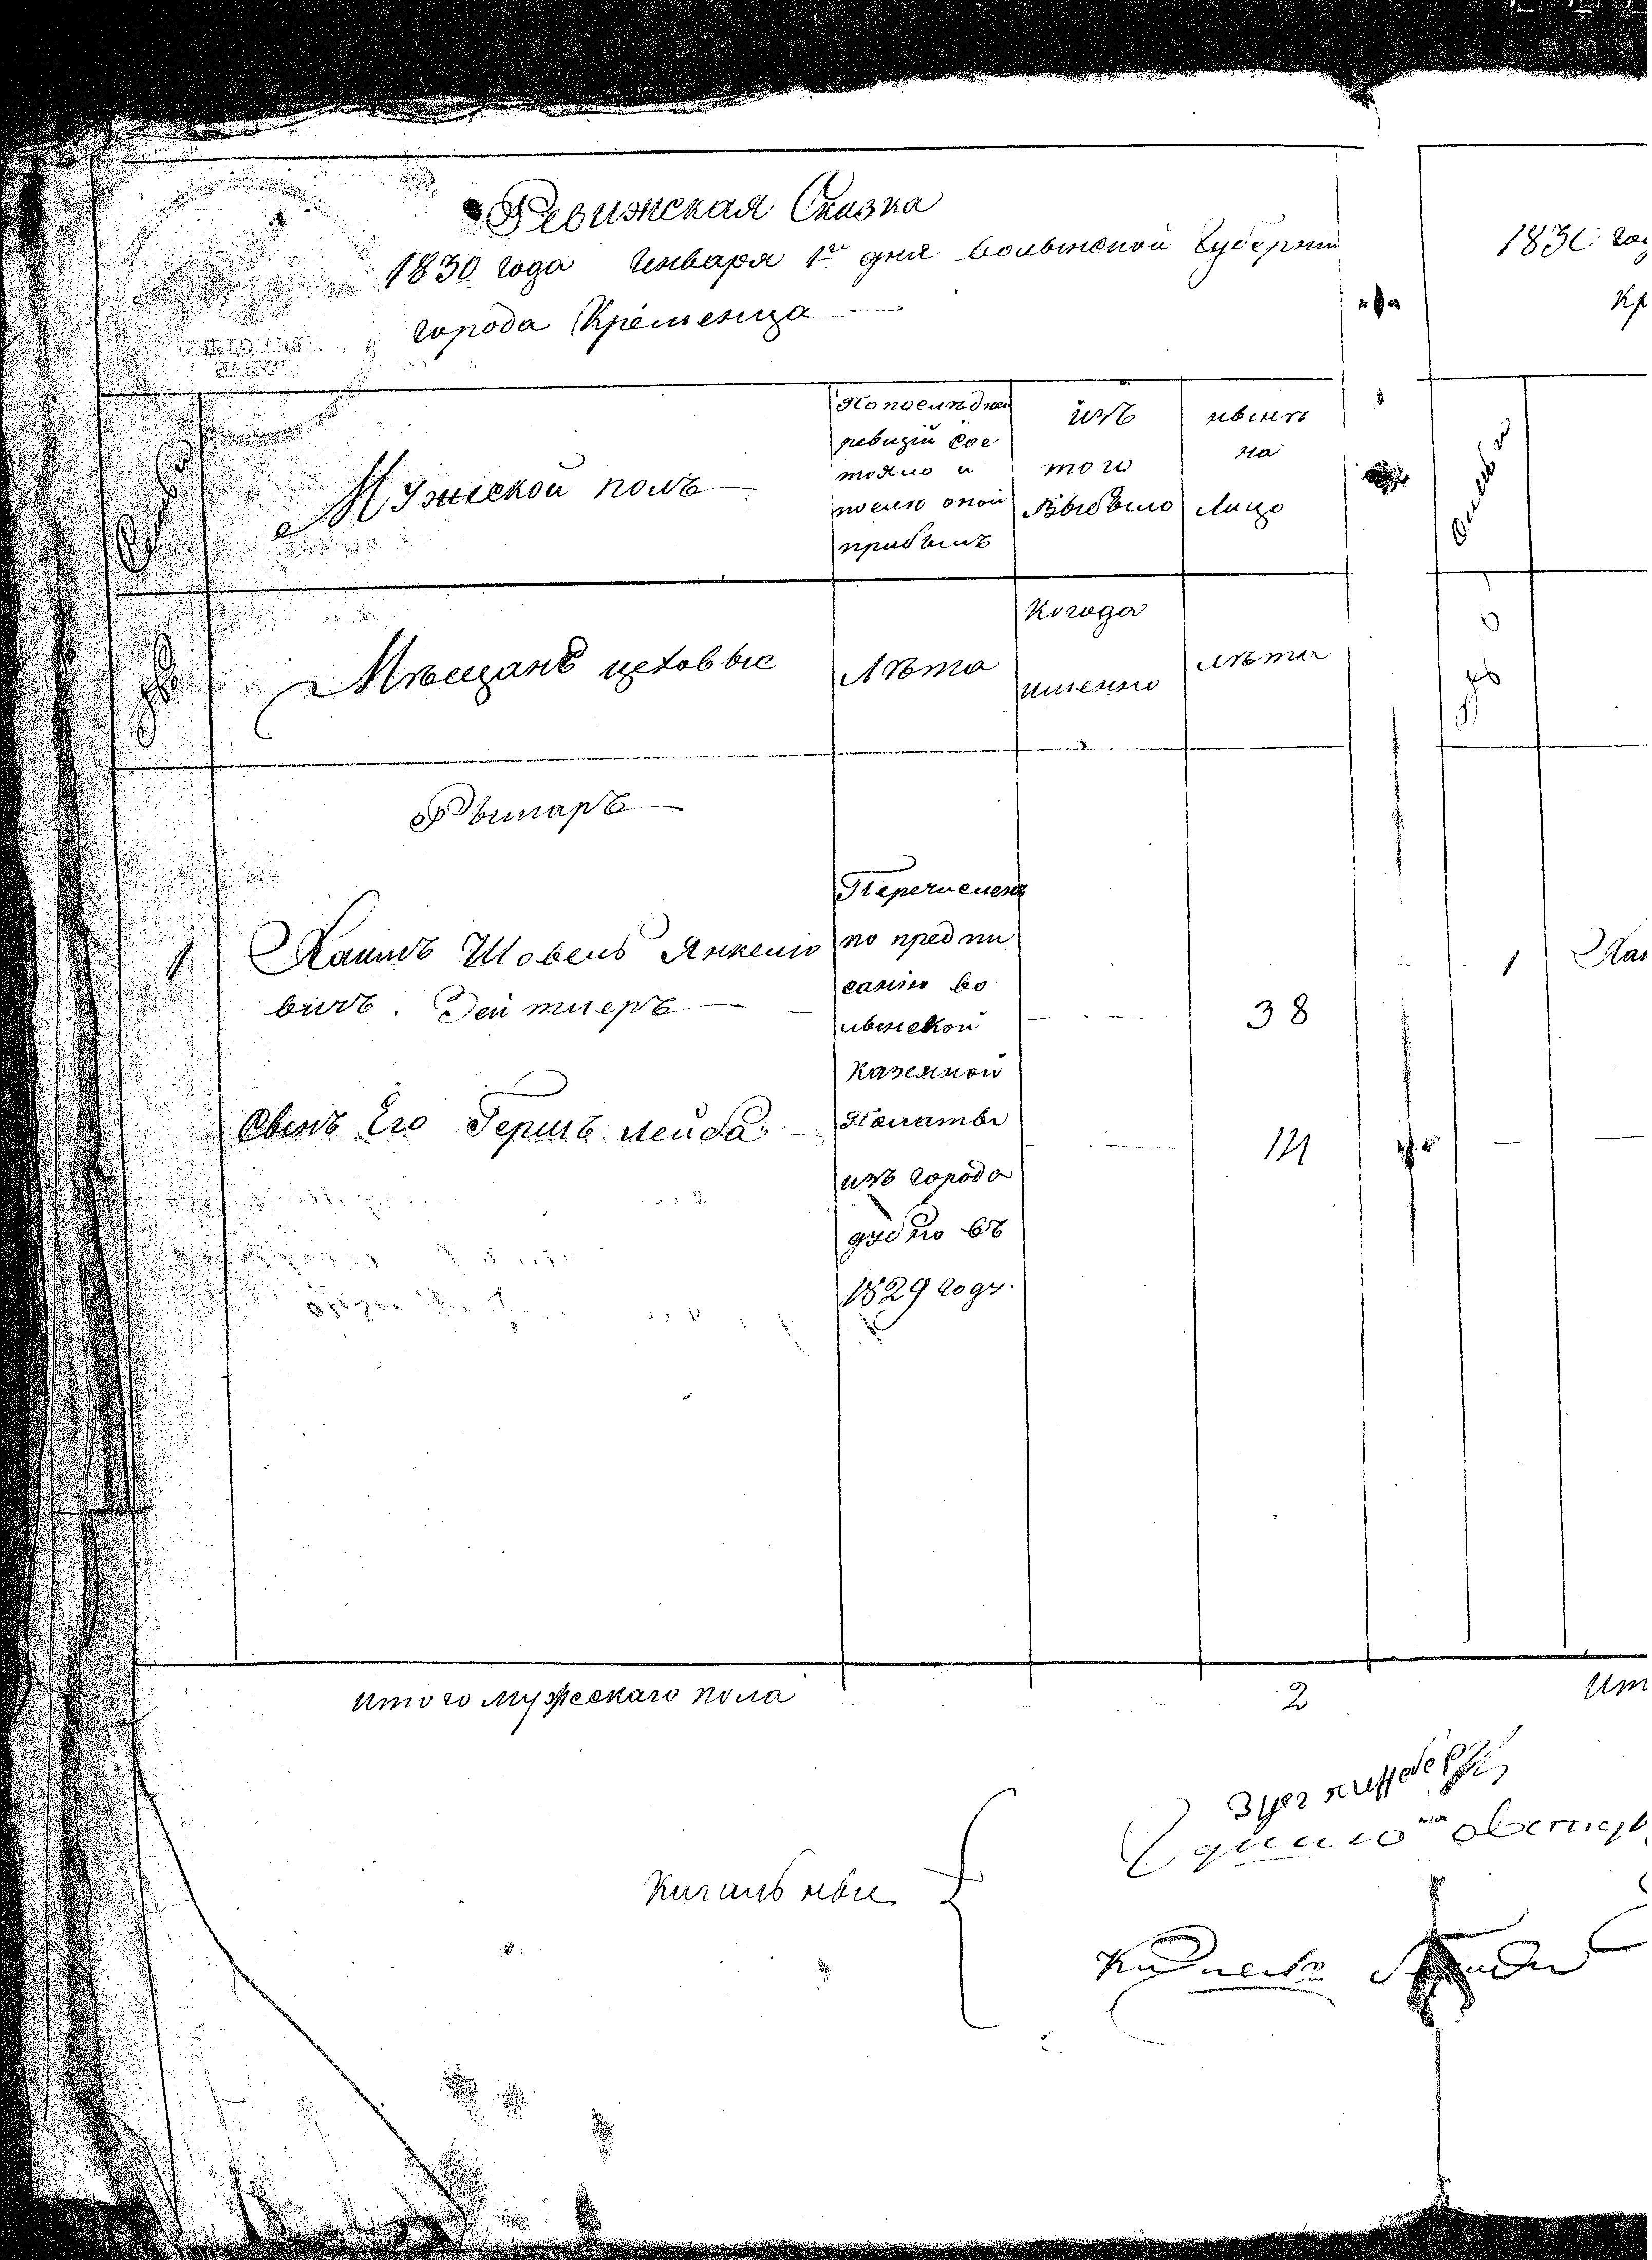 Ревижская Сказка
1830 года Генваря 1го дня Волынской Губернии
города Кременца
Семьи
Мужеской полъ
По последней
ревизии сос
тояло и
после оной
прибылъ
изъ
того
Выбыло
ныне
на
Лицо
№
Мѣщанъ цеховые
Лѣта
Когода
именно
лѣта
Рымаръ
1
Хаимъ Шовель Янкелио
вичъ. Дейтшеръ
38
Сынъ Его Гершъ лейба
14
Перечисленъ
по предпи
санію во
лынской
Казенной
Палаты
изъ города
дубно въ
1829 году.
итого мужескаго пола
2
Кагальные
1830 год
Кр
семьи
№
1
Хаи
Ит